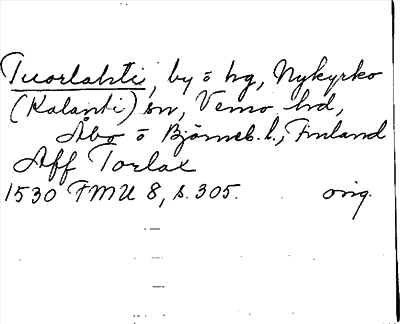 Tuorlahti, by o hg, Nykyrko
(Kalanti) sn, Vemo hd,
Åbo o Björneb. l., Finland
Aff Torlax
1530 FMU 8, s. 305. orig.